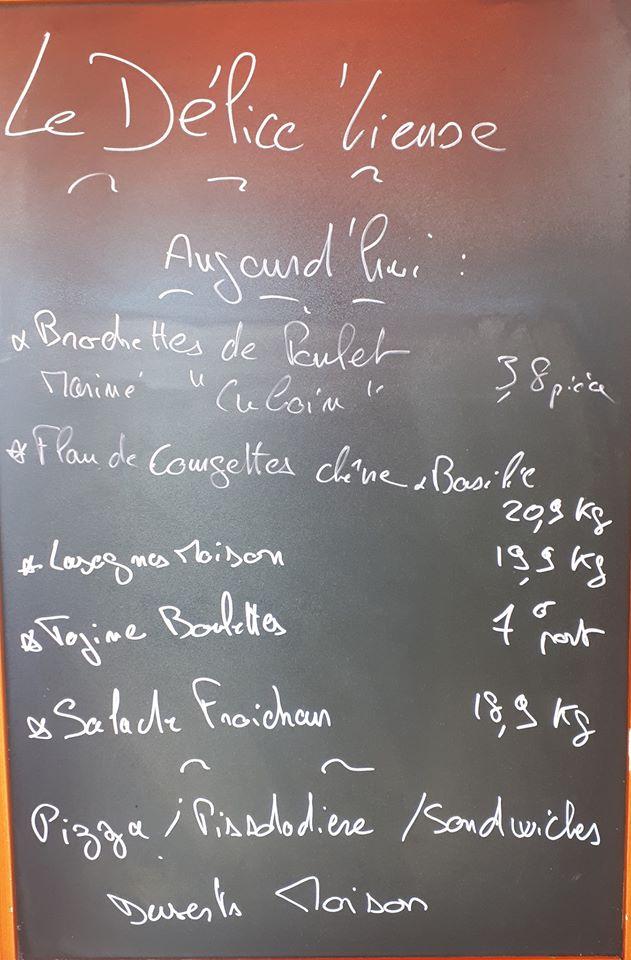 Le Délice 'Lieuse
Aujourd'hui :
Brochettes de Poulet
Mariné " Cubain "
3,8 pièce
Flan de Courgettes chèvre Basilic
20,9 Kg
Lasagnes Maison 19,9 Kg
Tajine Boulettes 7 € part
Salade Fraicheur 18,9 Kg
Pizza / Pissaladière / Sandwiches
Desserts Maison